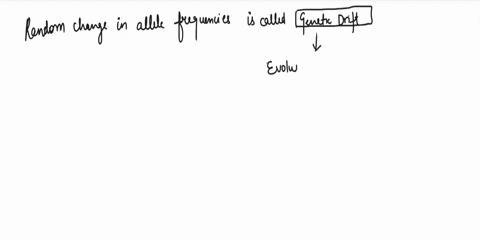 Random change in allele frequencies is called Genetic Drift
Evolu